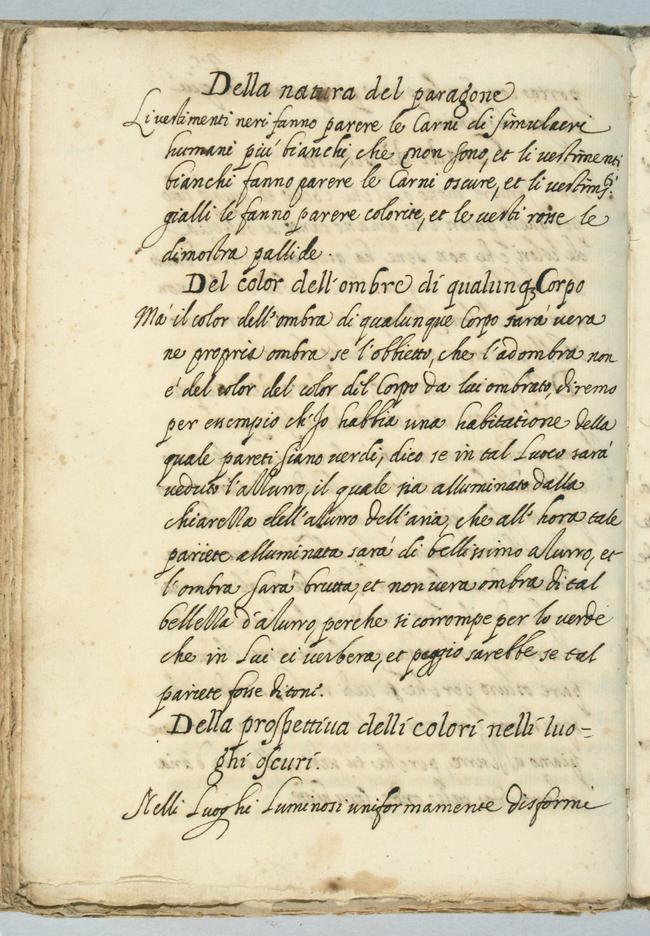 Della natura del paragone
Li vestimenti neri fanno parere le Carni di simulacri
humani piú bianchi, che non sono, et li vestimenti
bianchi fanno parere le Carni oscure, et li vestimti
gialli le fanno parere colorite, et le vesti rosse le
dimostra pallide.
Del color dell'ombre di qualunq; Corpo
Má il color dell'ombra di qualunque Corpo sará vera
ne propria ombra se l'obbietto, che l'adombra non
é del color del color dil Corpo da lui ombrato, diremo
per essempio ch'Jo habbia una habitatione della
quale pareti siano verdi, dico se in tal Luoco sará
veduto l'azzurro, il quale sia alluminato dalla
chiarezza dell'azurro dell'aria, che all'hora tale
pariete alluminata sará di bellissimo azurro, et
l'ombra sará brutta, et non vera ombra di tal
bellezza d'azurro, perche si corrompe per lo verde
che in Lui ci verbera, et peggio sarebbe se tal
pariete fosse di toni.
Della prospettiva delli colori nelli luo=
ghi oscuri.
Nelli Luoghi Luminosi uniformamente disformi